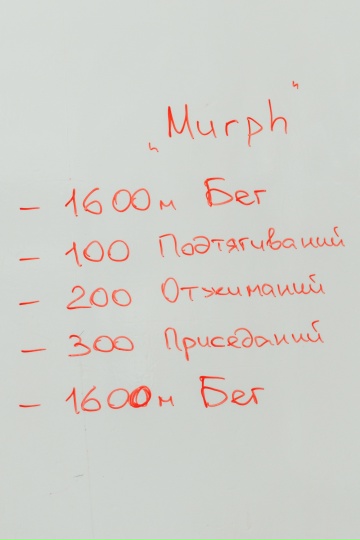 „Murph"
- 1600м Бег
- 100 Подтягиваний
- 200 Отжиманий
- 300 Приседаний
- 1600м Бег